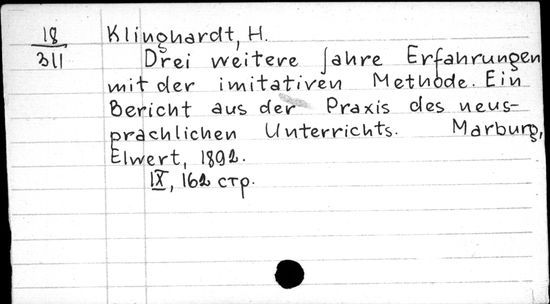 18
311
Klinghardt, H.
Drei weitere Jahre Erfahrungen
mit der imitativen Methode. Ein
Bericht aus der Praxis des neus-
prachlichen Unterrichts. Marburg,
Elwert, 1892.
IX, 162 стр.